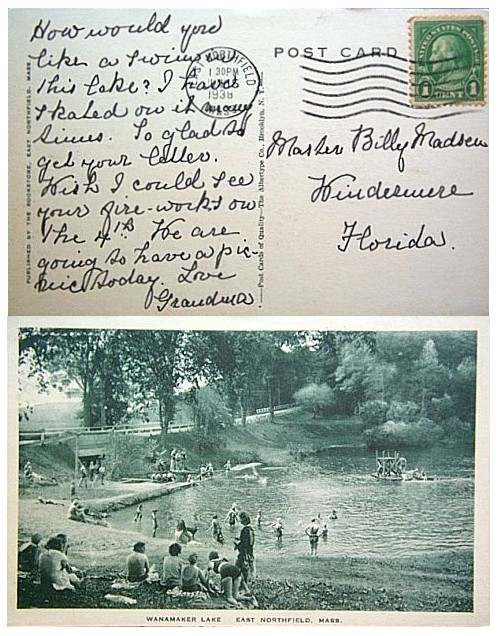 How would you
like a swim in
this lake? I have
skated on it many
times. So glad to
get your letter.
Wish I could see
your fire-works on
the 4th. We are
going to have a pic-
nic today. Love
Grandma
NORTHFIELD
1 30PM
1938
MASS.
POST CARD
UNITED STATES POSTAGE
1 CENT 1
Master Billy Madsen
Windermere
Florida.
PUBLISHED BY THE BOOKSTORE, EAST NORTHFIELD, MASS.
Post Cards of Quality—The Albertype Co., Brooklyn, N. Y.
WANAMAKER LAKE EAST NORTHFIELD, MASS.